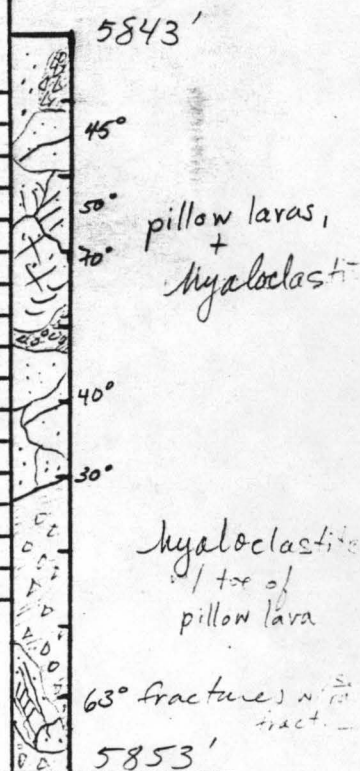 5843'
45°
50°
pillow lavas,
70°
+
hyaloclasti
40°
30°
hyaloclastite
w/ toe of
pillow lava
63° fractures w/
fract.
5853'